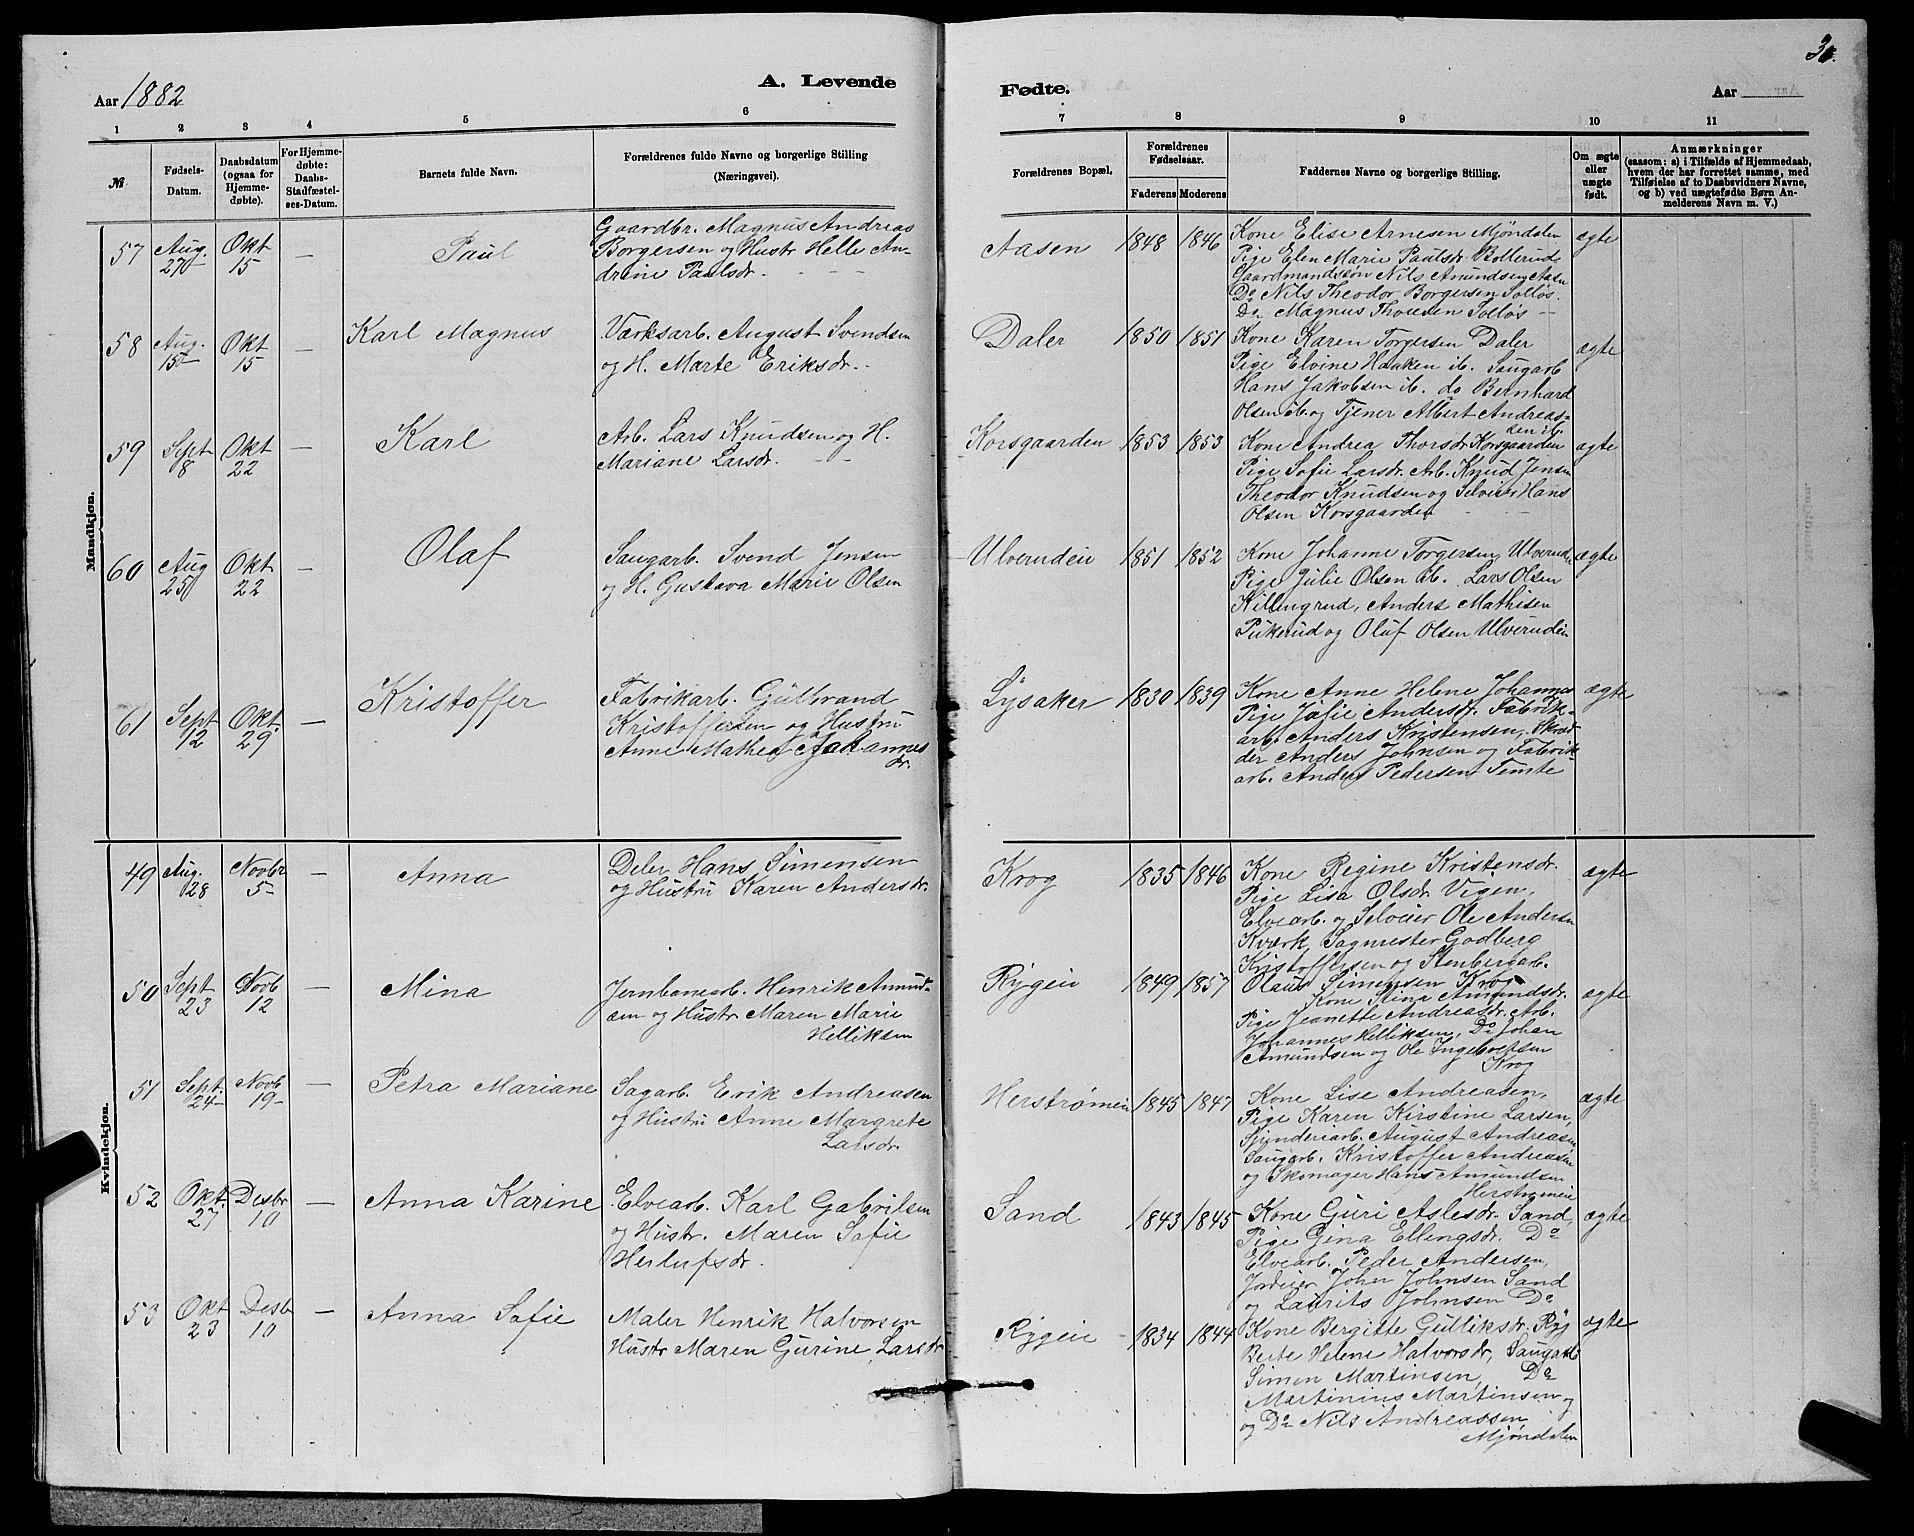 Aar 1882
A. Levende
1 2 3 4 5 6
№
Fødsels-Datum.
Daabsdatum (ogsaa for Hjemme-døbte).
For Hjemme-døbte: Daabs-Stadfæstel-ses-Datum.
Barnets fulde Navn.
Forældrenes fulde Navne og borgerlige Stilling (Næringsvei).
Mandkjøn.
57 Aug. 27 Okt 15 — Paul
Gaardbr. Magnus Andreas
Borgersen og Hustr Helle An-
drine Paulsdr.
58 Aug. 15 Okt 15 — Karl Magnus
Værksarb. August Svendsen
og H. Marte Eriksdr.
59 Sept 8 Okt 22 — Karl
Arb. Lars Knudsen og H.
Mariane Larsdr.
60 Aug 25 Okt 22 — Olaf
Saugarb. Svend Jensen
og H. Gustava Marie Olsen
61 Sept 12 Okt. 29 — Kristoffer
Fabrikarb. Gulbrand
Kristoffersen og Hustru
Anne Mathea Johannes
dr.
Kvindekjøn.
49 Aug. 28 Novbr 5 — Anna
Deler Hans Simensen
og Hustru Karen Andersdr.
50 Sept 23 Novb 12 — Mina
Jernbanearb. Henrik Amund-
sen og Hustr Maren Marie
Helliksen
51 Sept. 24 Novb 19 — Petra Mariane
Sagarb. Erik Andreasen
og Hustru Anne Margrete
Larsdr.
52 Okt. 27 Desbr 10 — Anna Karine
Elvearb. Karl Gabrilsen
og Hustr. Maren Sofie
Herlufsdr.
53 Okt 23 Desb 10 — Anna Sofie
Maler Henrik Halvorsen
Hustr Maren Gurine Larsdr
3
Fødte.
Aar
7 8 9 10 11
Forældrenes Bopæl,
Forældrenes Fødselsaar.
Faderens Moderens
Faddernes Navne og borgerlige Stilling.
Om ægte eller uægte født.
Anmærkninger
(saasom: a) i Tilfælde af Hjemmedaab,
hvem der har forrettet samme, med
Tilføielse af to Daabsvidners Navne,
og b) ved uægtefødte Børn An-
melderens Navn m. V.)
Aasen 1848 1846 ægte
Kone Elise Arnesen Mjøndalen
Pige Elen Marie Paulsdr Bollerud
Gaardmandssøn Nils Amundsen Aasen
Do Nils Theodor Borgersen Solløs.
Do Magnus Thoresen Solløs
Daler 1850 1851 ægte
Kone Karen Torgersen Daler
Pige Elvine Haaken ib. Saugarb
Hans Jakobsen ib. do Bernhard
Olsen ib. og Tjener Albert Andreas-
sen ib.
Korsgaarden 1853 1853 ægte
Kone Andrea Thorsdr Korsgaarden
Pige Sofie Larsdr. Arb. Knud Jensen
Theodor Knudsen og Selveier Hans
Olsen Korsgaarden
Ulverudeie 1851 1852 ægte
Kone Johanne Torgersen Ulverud
Pige Julie Olsen ib. Lars Olsen
Killingrud, Anders Mathisen
Pukerud og Oluf Olsen Ulverudein
Lysaker 1830 1839 ægte
Kone Anne Helene Johannes
Pige Jofie Andersdr. Fabrik-
arb. Anders Kristensen, Skræd-
der Anders Johnsen og Fabrik-
arb. Anders Pedersen Temte
Krog 1835 1846 ægte
Kone Regine Kristensdr.
Pige Lisa Olsdr. Vigen,
Elvearb. og Selveier Ole Andersen
Kværk, Sagmester Godberg
Kristoffersen og Stenbergarb.
Olaus Simensen Krog
Rygeie 1849 1857 ægte
Kone Stina Amundsdr.
Pige Jeanette Andreasdr. Arb.
Johannes Helliksen, Do Johan
Amundsen og Ole Ingebretsen
Krog
Herstrømeie 1845 1847 ægte
Kone Lise Andreasen,
Pige Karen Kirstine Larsen,
Spinderiarb. August Andreasen
Saugarb. Kristoffer Andreasen
og Skomager Hans Amundsen
Herstrømeie
Sand 1843 1845 ægte
Kone Guri Aslesdr. Sand,
Pige Gina Ellingsdr. Do
Elvearb. Peder Andersen,
Jordeier Joher Johnsen Sand
og Laurits Johnsen Do
Rygeie 1834 1844 ægte
Kone Bergitte Gulliksdr. Ryg
Berte Helene Halvorsdr, Saugarb
Simen Martinsen, Do
Martinius Martinsen og
og Do Nils Andreassen
Mjøndalen